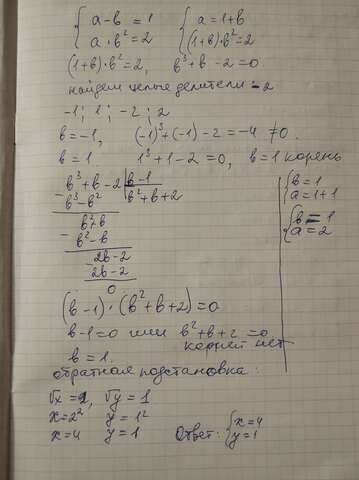 { a - b = 1   { a = 1 + b
{ a · b² = 2   { (1+b)·b² = 2
(1+b)·b² = 2,   b³ + b - 2 = 0
найдем целые делители -2
-1; 1; -2; 2
b = -1,   (-1)³ + (-1) - 2 = -4 ≠ 0.
b = 1   1³ + 1 - 2 = 0,   b = 1 корень
b³ + b - 2 | b - 1
- b³ - b² | b² + b + 2
b² + b
- b² - b
2b - 2
- 2b - 2
0
(b - 1) · (b² + b + 2) = 0
b - 1 = 0 или b² + b + 2 = 0
корней нет
b = 1.
{ b = 1
{ a = 1 + 1
{ b = 1
{ a = 2
обратная подстановка:
√x = 2, √y = 1
x = 2²   y = 1²
x = 4   y = 1   Ответ: { x = 4
{ y = 1